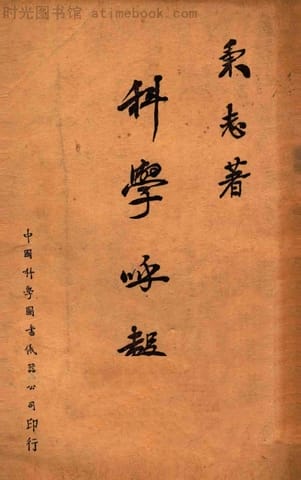 时光图书馆 - atimebook.com
秉志著
科學呼聲
中國科學圖書儀器公司印行